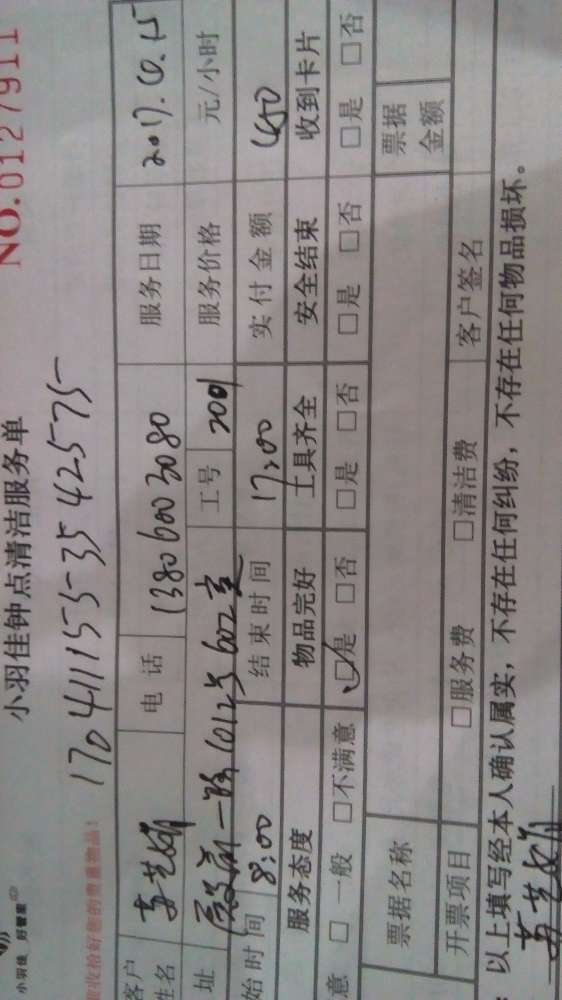 小羽佳 好管家
小羽佳钟点清洁服务单
NO.0127911
收拾好您的贵重物品!
1704111555354 2575
客户姓名 电话 13806003080 服务日期
址 602室 工号 2001 服务价格 元/小时
始时间 8:00 结束时间 17:00 实付金额 450
服务态度 物品完好 工具齐全 安全结束 收到卡片
意 □ 一般 □不满意 ☑是 □否 □是 □否 □是 □否 □是 □否
票据名称 票据金额
开票项目 □服务费 □清洁费 客户签名
以上填写经本人确认属实,不存在任何纠纷,不存在任何物品损坏。